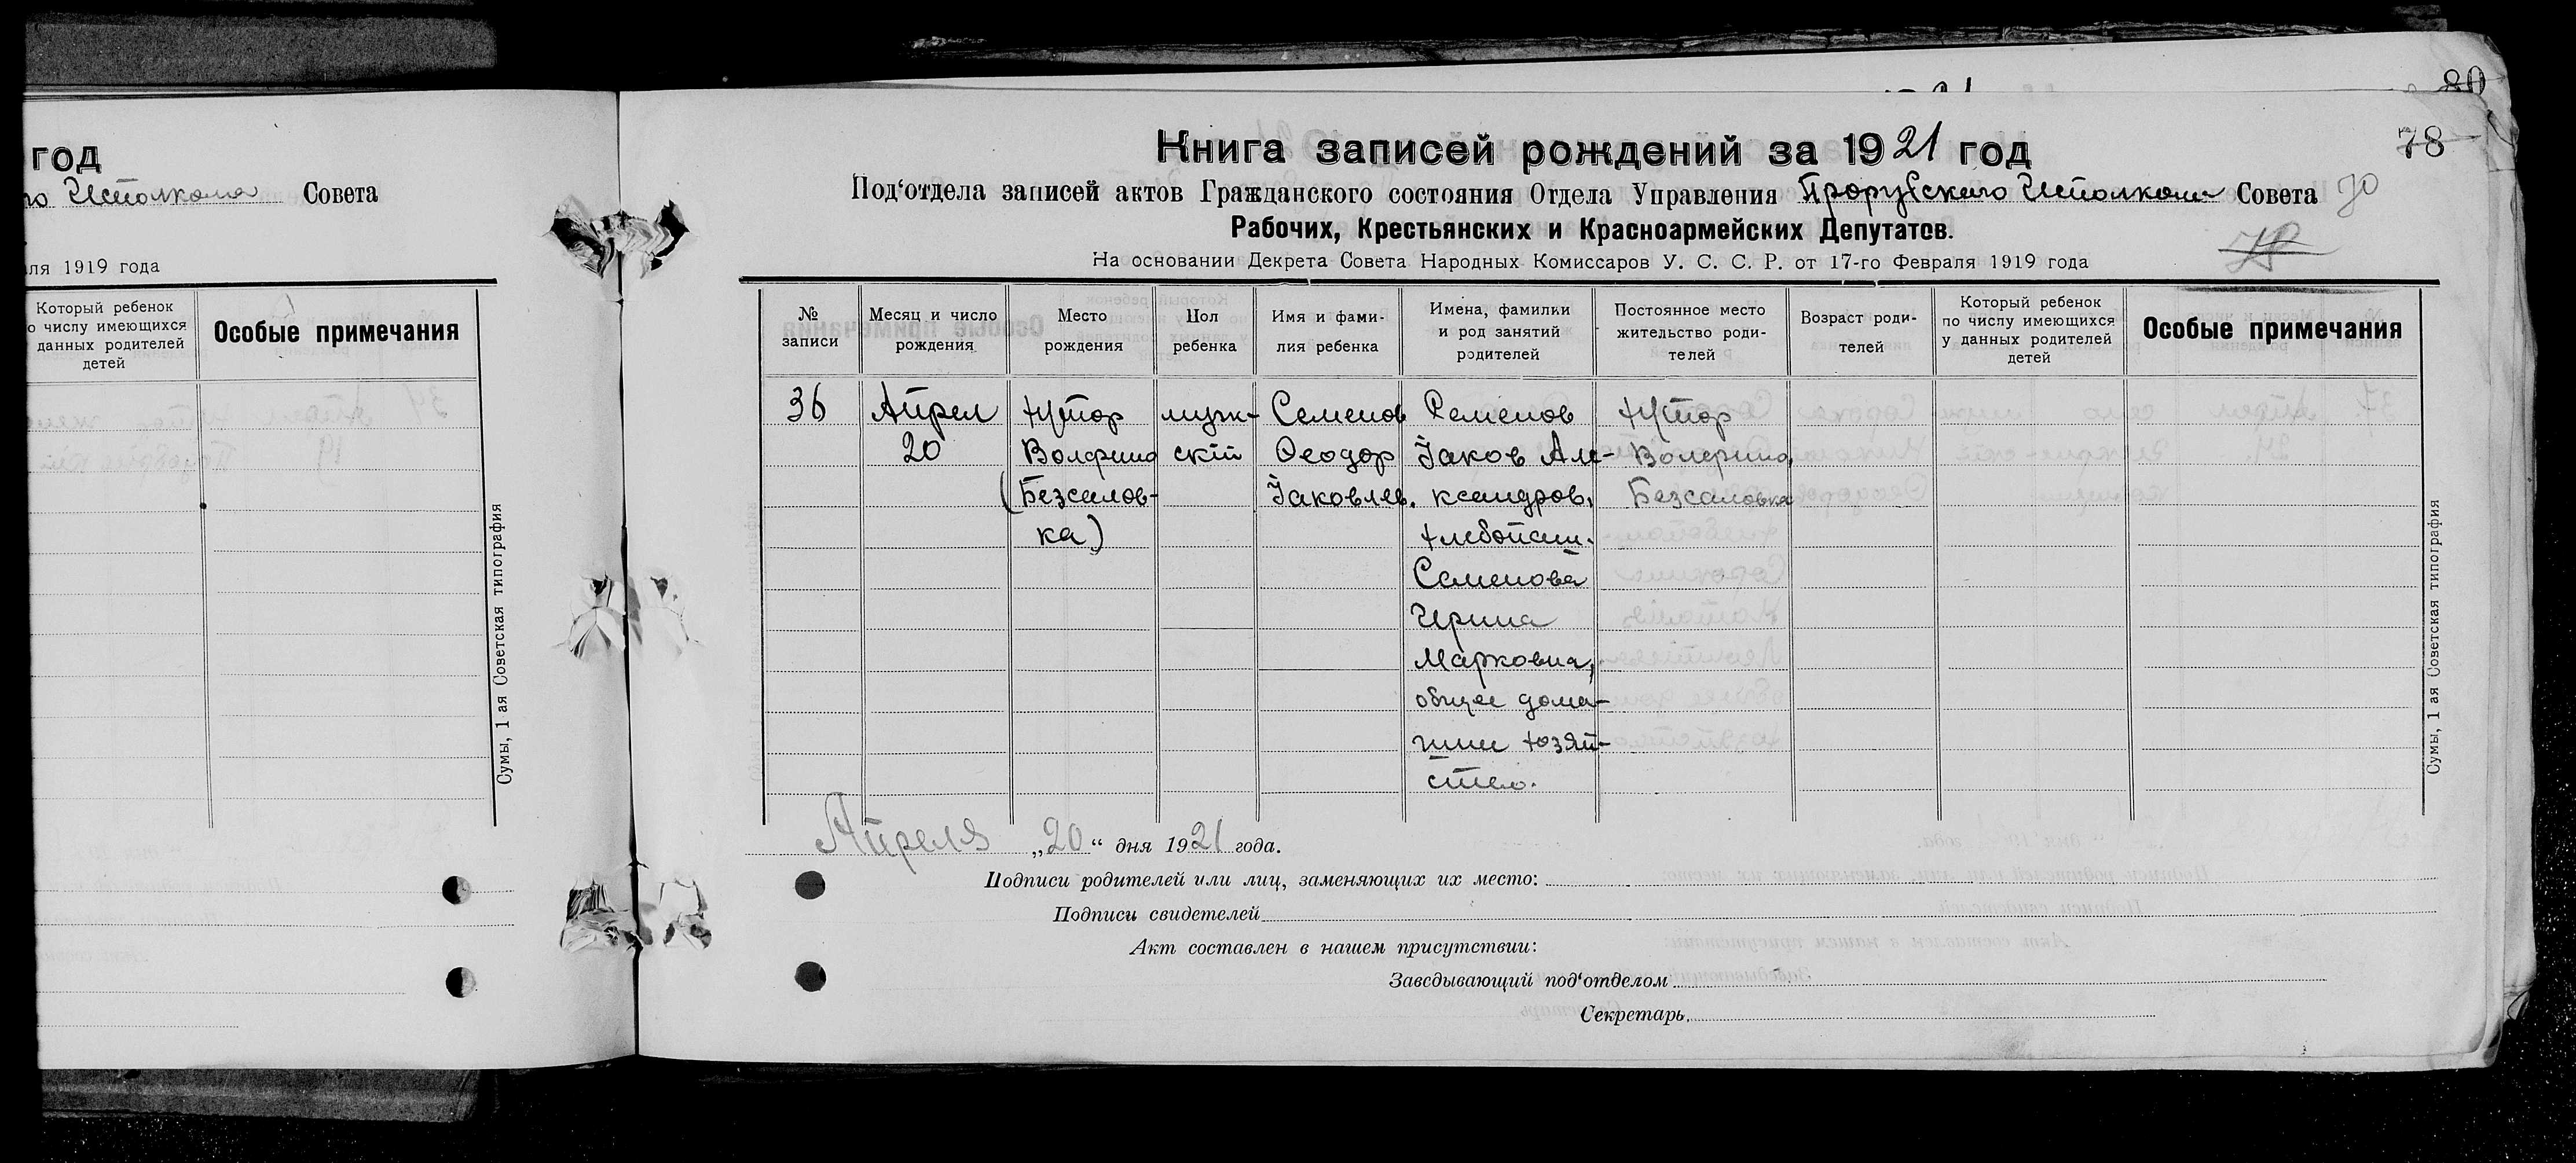 год
Исполкома Совета
ля 1919 года
Который ребенок
о числу имеющихся
данных родителей
детей
Особые примечания
Сумы, 1 ая Советская типография
80
Книга записей рождений за 1921 год
78
Под‘отдела записей актов Гражданского состояния Отдела Управления Прорубского Исполкома Совета
70
Рабочих, Крестьянских и Красноармейских Депутатов.
На основании Декрета Совета Народных Комиссаров У. С. С. Р. от 17-го Февраля 1919 года
№ записи
Месяц и число рождения
Место рождения
Пол ребенка
Имя и фами-
лия ребенка
Имена, фамилии
и род занятий
родителей
Постоянное место
жительство роди-
телей
Возраст роди-
телей
Который ребенок
по числу имеющихся
у данных родителей
детей
Особые примечания
36
Апрел
20
Хутор
(Безсалов-
ка)
муж-
скій
Семенов
Ѳеодор
Іаковлев.
Семенов
Іаков Але-
ксандров,
хлебопаш.
Семенова
Ирина
Марковна,
общее дома-
шнее хозяй-
ство.
Хутор
Безсаловка
Сумы, 1 ая Советская типография
Апреля „20“ дня 1921 года.
Подписи родителей или лиц, заменяющих их место:
Подписи свидетелей
Акт составлен в нашем присутствии:
Заведывающий под‘отделом
Секретарь